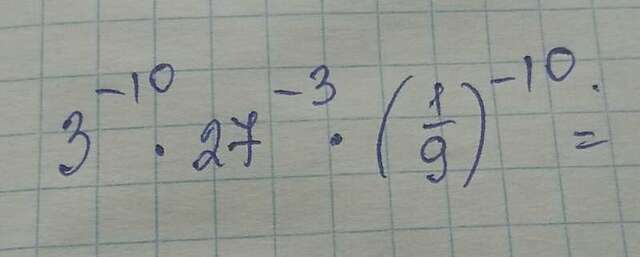 3⁻¹⁰ · 27⁻³ · (1/9)⁻¹⁰. =